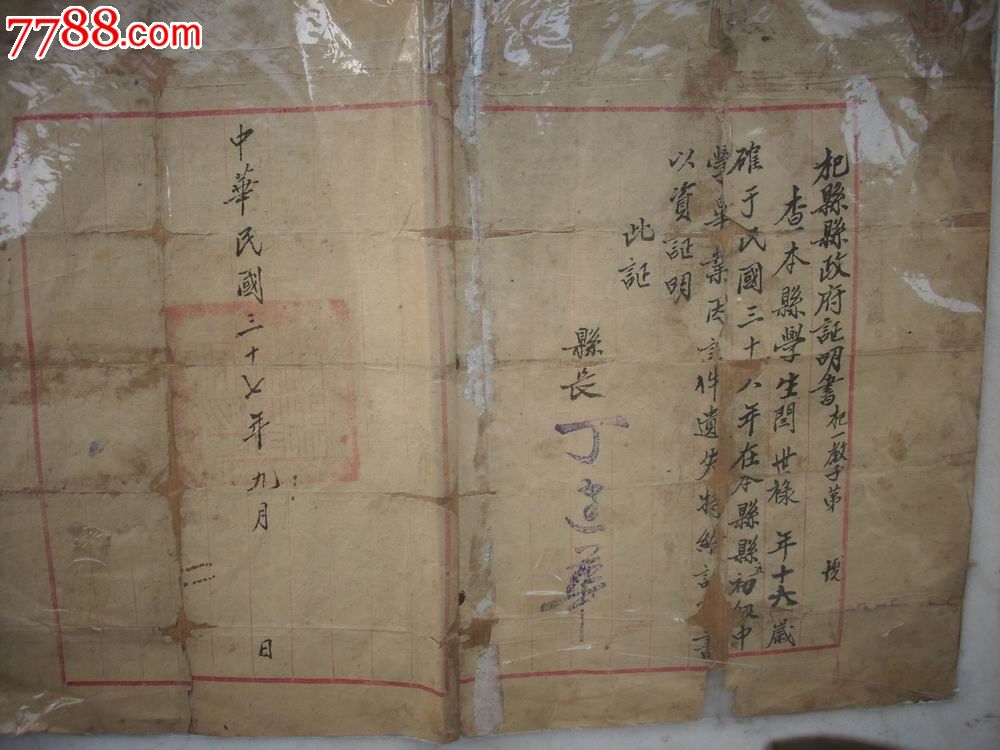 7788.com
杞縣縣政府証明書杞一教子第 號
查本縣學生閆世祿 年十六歲
確于民國三十八年在本縣縣立初級中
學畢業因証件遺失特給証 書
以資証明
此証
縣長 丁建華
中華民國三十七年九月 日